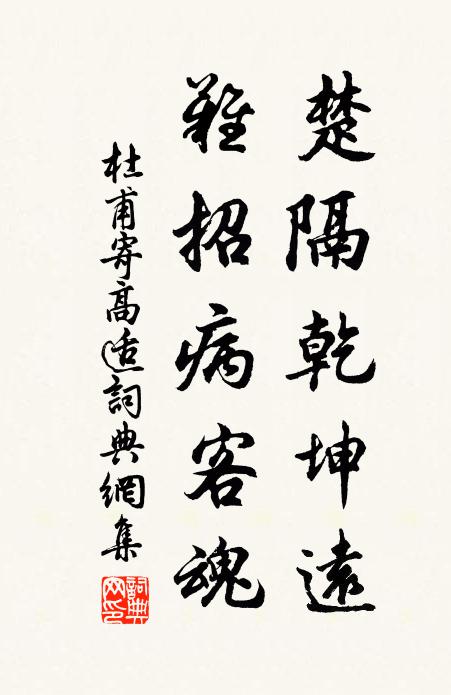 楚隔乾坤遠
難招病客魂
杜甫寄高適詞典網集
詞典網印